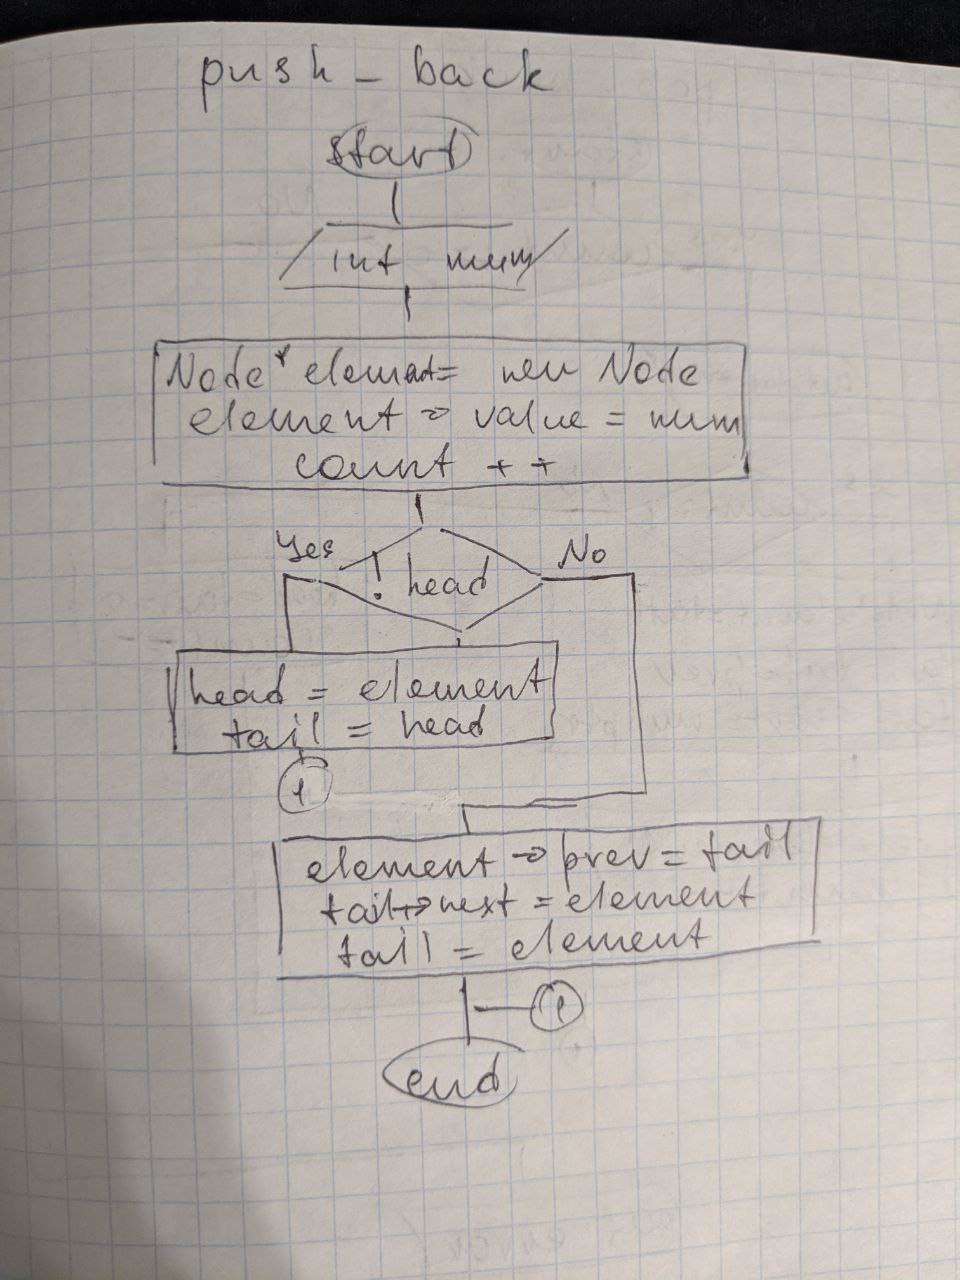 push_back
start
int num
Node* element = new Node
element -> value = num
count ++
Yes
! head
No
head = element
tail = head
1
element -> prev = tail
tail -> next = element
tail = element
1
end